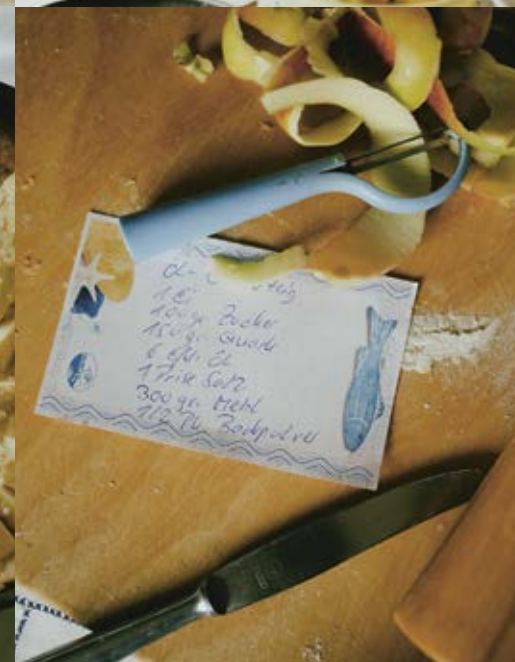 1 Ei
100 gr. Zucker
150 gr. Quark
6 Eßl. Öl
1 Prise Salz
300 gr. Mehl
1/2 Pk. Backpulver